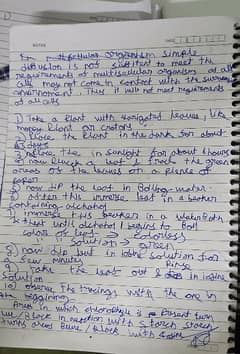 NOTES
In multicellular organism simple
diffusion is not sufficient to meet the
requirements of multicellular organism as all
cells may not come in contact with the
environment, Thus it will not meet requirements
of all cells
1) Take a Plant with variegated leaves, like
money Plant or crotons
2) Place the Plant in the dark for about
days
3) Place the in sunlight for about 6 hours
4) now Pluck a leaf & trace the green
areas of the leaves on a piece of
Paper
5) now dip the leaf in Boiling water
6) after this immerse leaf in a beaker
containing alcohol
7) immerse this beaker in a water bath
& heat until alcohol begins to Boil
color of leaf - colorless
Solution → green
8) now dip leaf in iodine solution for
a few minutes
9) Take the leaf out & rinse in iodine
Solution
10) observe the tracings with the one in
the beginning
Areas in which chlorophyll is Present turn
blue/black in with starch
turns areas blue/black with